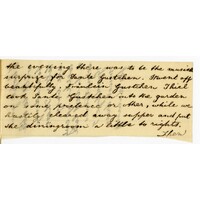 the evening there was to be the musical
surprise for Tante Gutchen. It went off
beautifully, Fräulein Gustchen Thiel
took Tante Gutchen into the garden
on some pretence or other, while we
hastily cleared away supper and put
the diningroom a little to rights.
Then